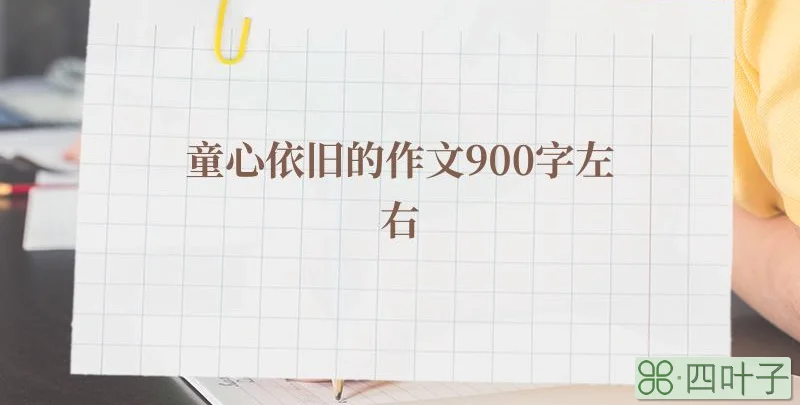 童心依旧的作文900字左
右
四叶子